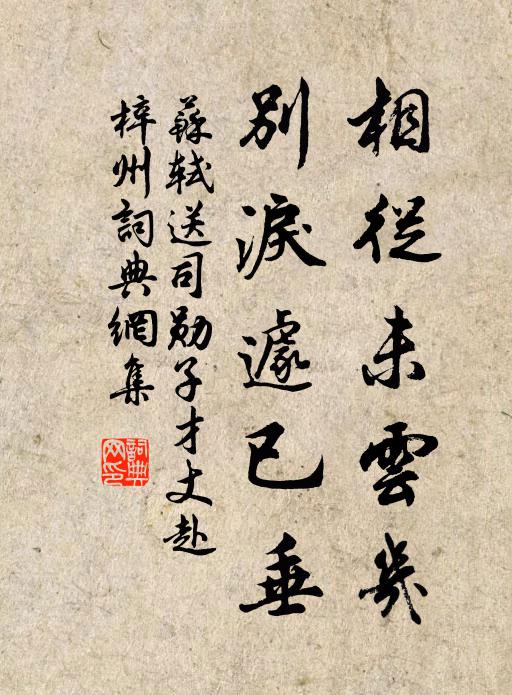 相從未雲幾
別淚遽已垂
蘇軾送司勛子才丈赴
梓州詞典網集
詞典網印